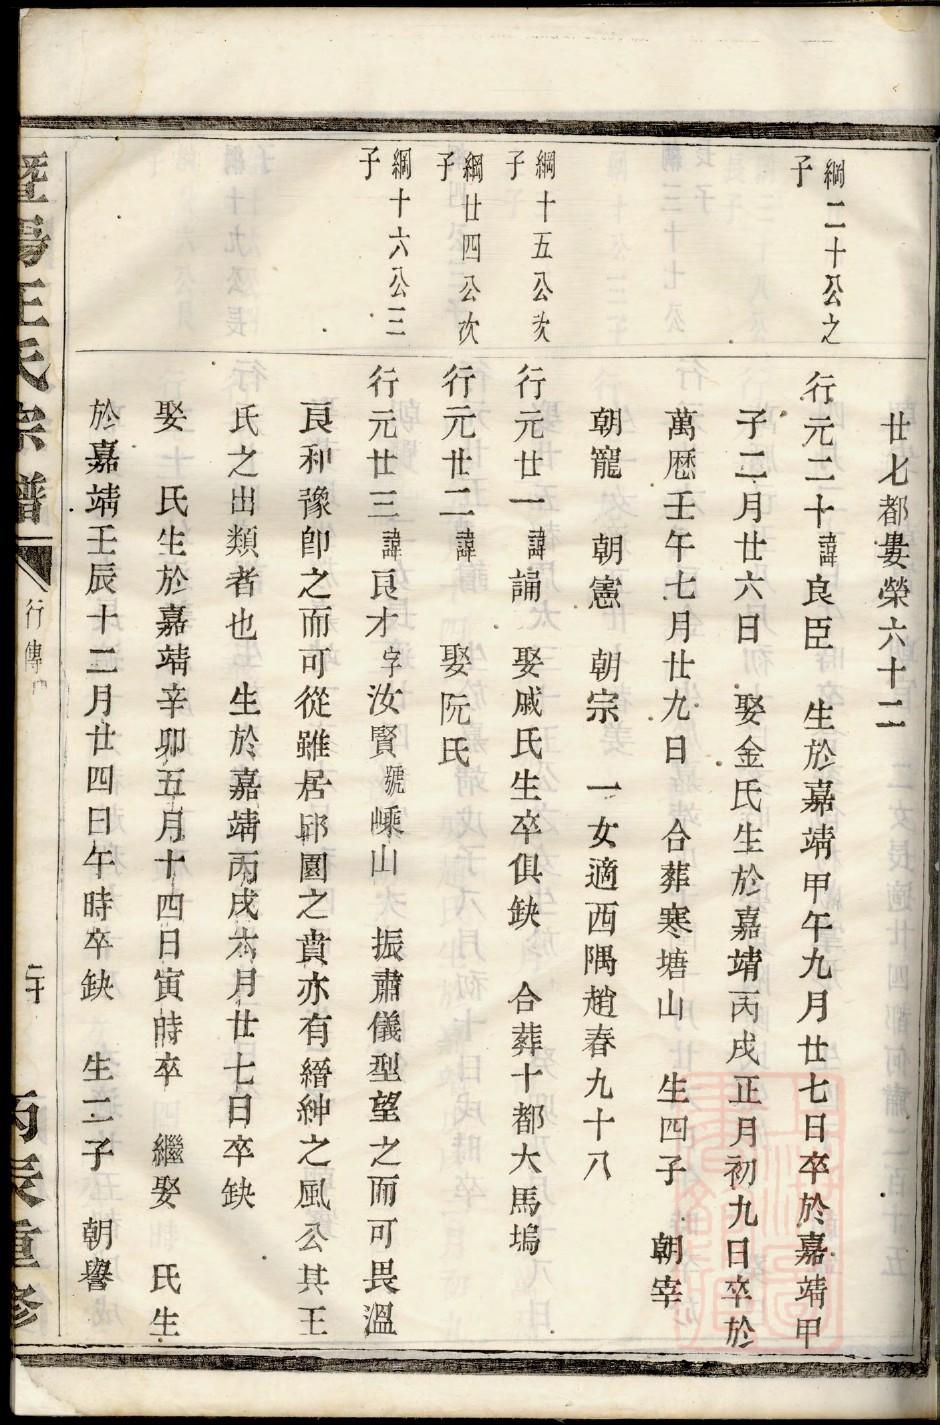 廿七都婁榮六十二
綱二十公之
子
行元二十諱良臣　生於嘉靖甲午九月廿七日卒於嘉靖甲
子二月廿六日　娶金氏生於嘉靖丙戌正月初九日卒於
萬歷壬午七月廿九日　合葬寒塘山　生四子　朝宰
朝寵　朝憲　朝宗　一女適西隅趙春九十八
綱十五公次
子
行元廿一諱誦　娶戚氏生卒俱缺　合葬十都大馬塢
綱廿四公次
子
行元廿二諱　娶阮氏
綱十六公三
子
行元廿三諱良才字汝賢號嵊山　振肅儀型望之而可畏溫
良和豫卽之而可從雖居邱園之賁亦有縉紳之風公其王
氏之出類者也　生於嘉靖丙戌六月廿七日卒缺
娶　氏生於嘉靖辛卯五月十四日寅時卒　繼娶　氏生
於嘉靖壬辰十二月廿四日午時卒缺　生二子　朝譽
暨陽王氏宗譜
行傳
丙辰重修